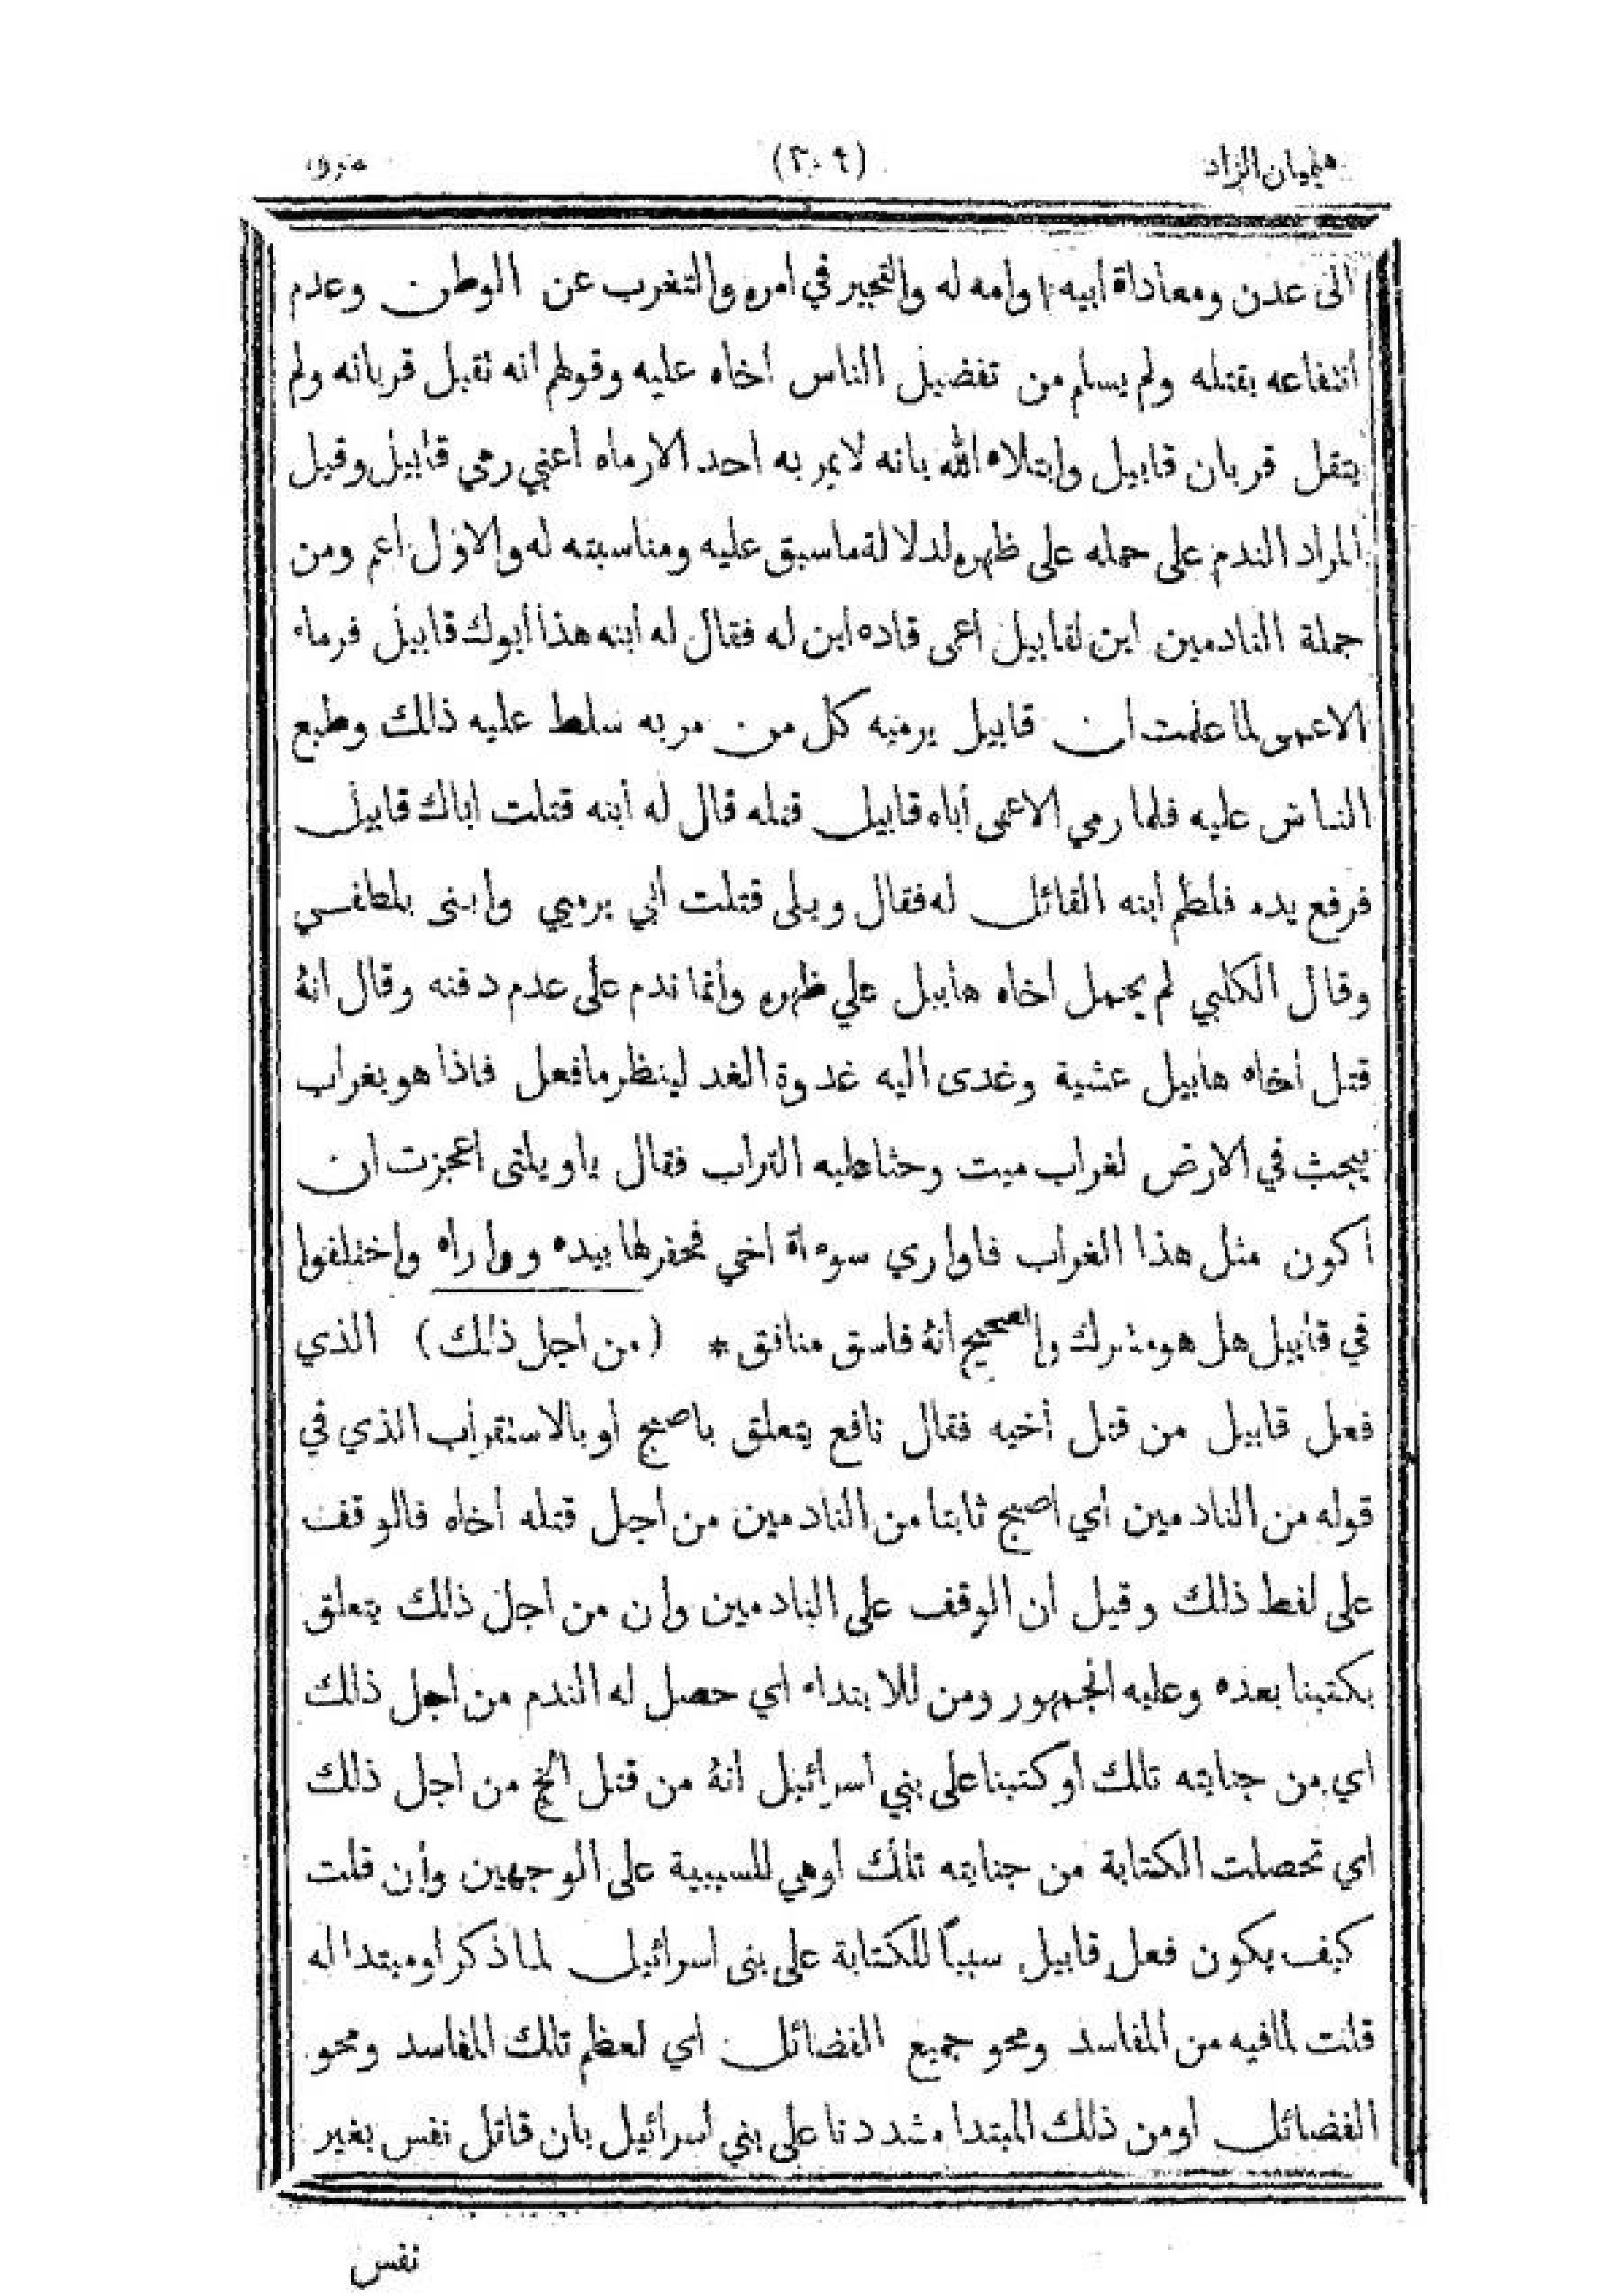 هيميان الزاد (٢٠٩)
الى عدن ومعاداة ابيه وامه له والتحير في امره والتغرب عن الوطن وعدم
انتفاعه بقتله ولم يسلم من تفضيل الناس اخاه عليه وقولهم انه تقبل قربانه ولم
يتقل قربان قابيل وابتلاه الله بانه لا يمر به احد الا رماه أعني رمي قابيل وقيل
المراد الندم على حمله على ظهره لدلالة ما سبق عليه ومناسبته له والاول اعم ومن
جملة النادمين ابن لقابيل أعمى قاده ابن له فقال له ابنه هذا أبوك قابيل فرماه
الاعمى لما علمت ان قابيل يرميه كل من مر به سلط عليه ذلك وطبع
الناس عليه فلما رمي الاعمى أباه قابيل قتله قال له أبنه قتلت اباك قابيل
فرفع يده فلطم أبنه القائل له فقال ويلى قتلت أبي برميي وابنى بلطفسي
وقال الكلبي لم يحمل اخاه هابيل علي ظهره وأنما ندم على عدم دفنه وقال انهُ
قتل أخاه هابيل عشية وغدى اليه غدوة الغد لينظر ما فعل فاذا هو بغراب
يبحث في الارض لغراب ميت وحثا عليه التراب فقال ياويلتى اعجزت ان
أكون مثل هذا الغراب فاواري سوءاة اخي فحفر لها بيده وواراه واختلفوا
في قابيل هل هو مشرك والصحيح انهُ فاسق منافق * (من اجل ذلك) الذي
فعل قابيل من قتل أخيه فقال نافع يتعلق باصبح أو بالاستقراب الذي في
قوله من النادمين اي اصبح ثابتا من النادمين من اجل قتله أخاه فالوقف
على لفط ذلك وقيل ان الوقف على النادمين وان من اجل ذلك يتعلق
بكتبنا بعده وعليه الجمهور ومن للابتداء اي حصل له الندم من اجل ذلك
اي من جنايته تلك او كتبنا على بني اسرائيل انهُ من قتل الخ من اجل ذلك
اي تحصلت الكتابة من جنايته تلك اوهي للسببية على الوجهين وأن قلت
كيف يكون فعل قابيل سبباً للكتابة على بنى اسرائيل لما ذكر او مبتدا له
قلت لما فيه من المفاسد ومحو جميع الفضائل اي لعظم تلك المفاسد ومحو
الفضائل أو من ذلك المبتدا شددنا على بني أسرائيل بان قاتل نفس بغير
نفس